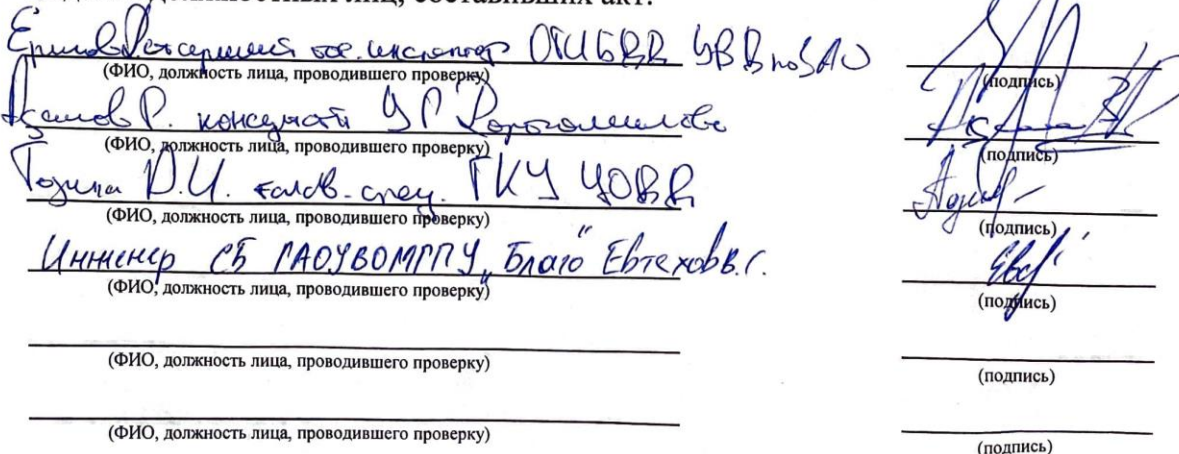 должностных лиц, составивших акт:
Ершов Р. старший гос. инспектор ОГИБДД УВД по ЗАО
(ФИО, должность лица, проводившего проверку)
(подпись)
Р. консультант УР Дорогомилово
(ФИО, должность лица, проводившего проверку)
(подпись)
Д.И. спец. ГКУ ЦОДД
(ФИО, должность лица, проводившего проверку)
(подпись)
Инженер СБ ГАОУВОМГПУ „Благо" Евтехов В.Г.
(ФИО, должность лица, проводившего проверку)
(подпись)
(ФИО, должность лица, проводившего проверку)
(подпись)
(ФИО, должность лица, проводившего проверку)
(подпись)